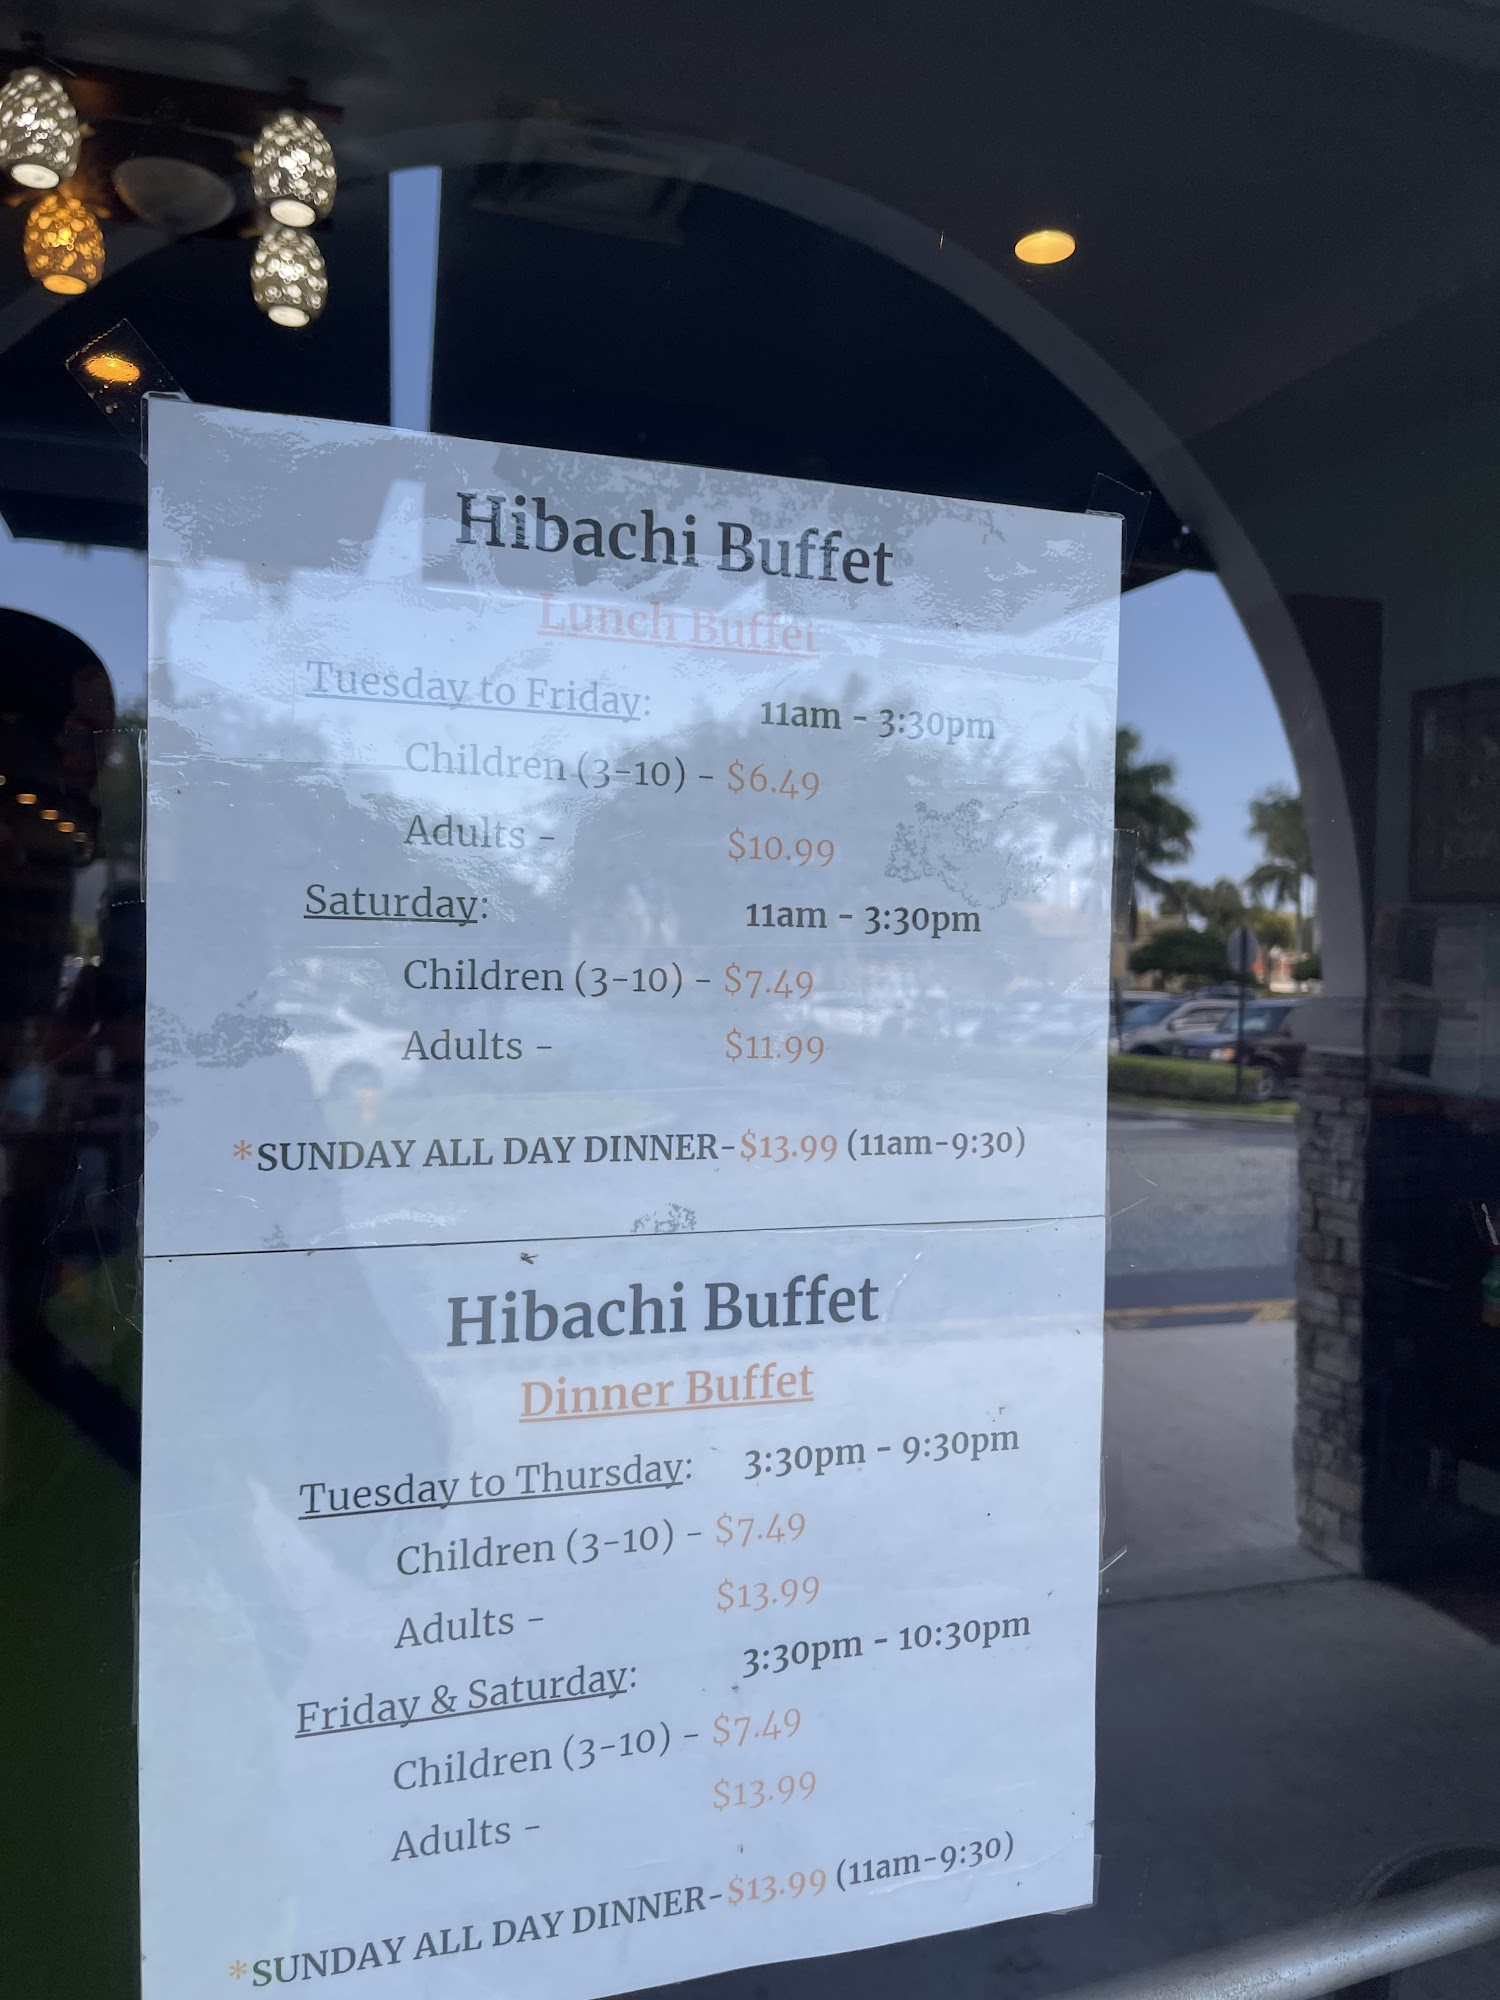 Hibachi Buffet
Lunch Buffet
Tuesday to Friday: 11am - 3:30pm
Children (3-10) - $6.49
Adults - $10.99
Saturday: 11am - 3:30pm
Children (3-10) - $7.49
Adults - $11.99
*SUNDAY ALL DAY DINNER-$13.99 (11am-9:30)
Hibachi Buffet
Dinner Buffet
Tuesday to Thursday: 3:30pm - 9:30pm
Children (3-10) - $7.49
Adults - $13.99
Friday & Saturday: 3:30pm - 10:30pm
Children (3-10) - $7.49
Adults - $13.99
*SUNDAY ALL DAY DINNER-$13.99 (11am-9:30)